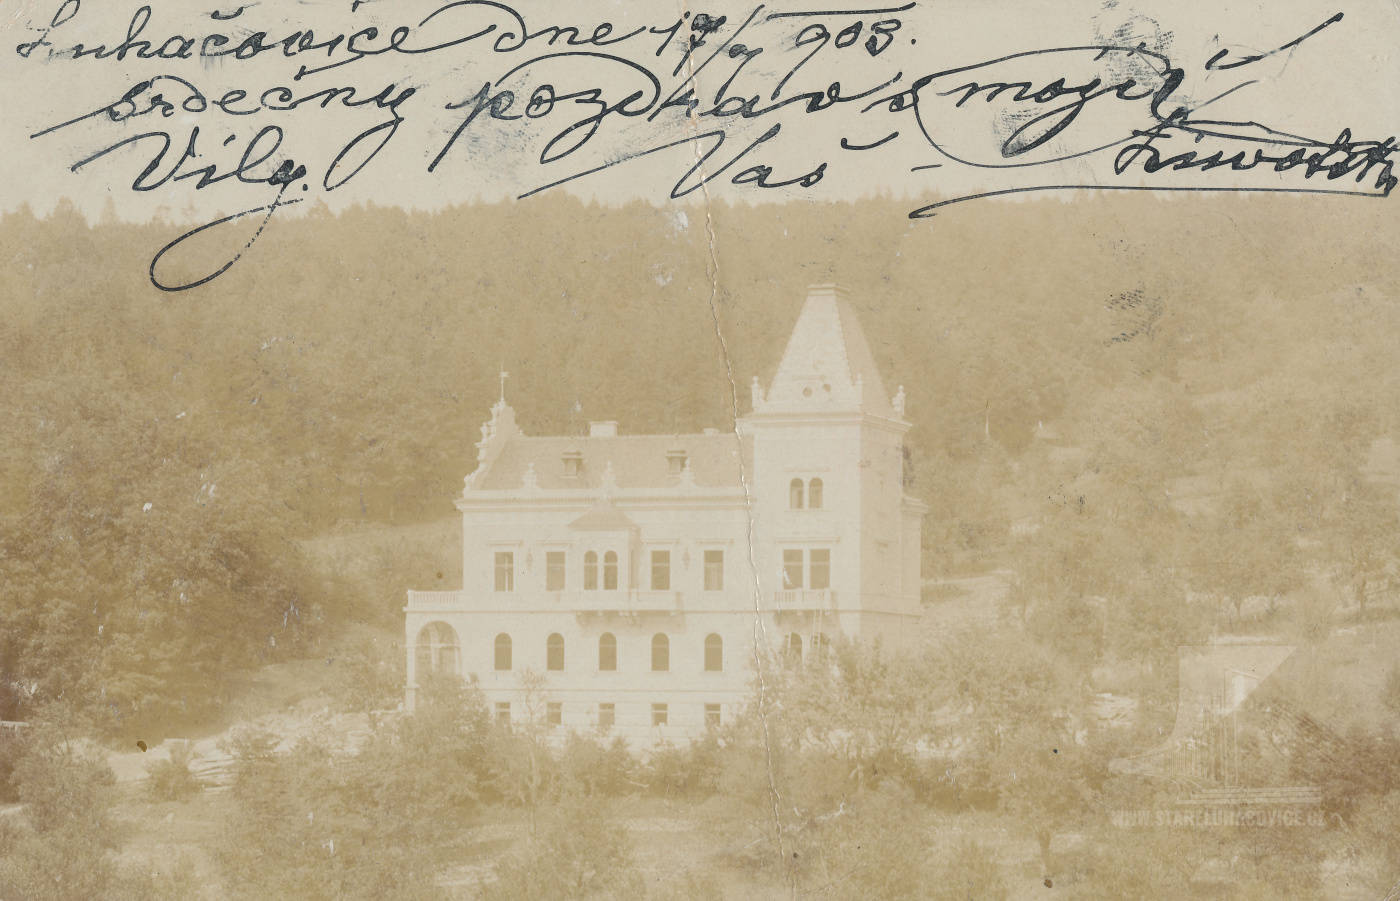 Luhačovice dne 17/9 903.
srdečný pozdrav s mojí
Vily. Váš
WWW.STARELUHACOVICE.CZ